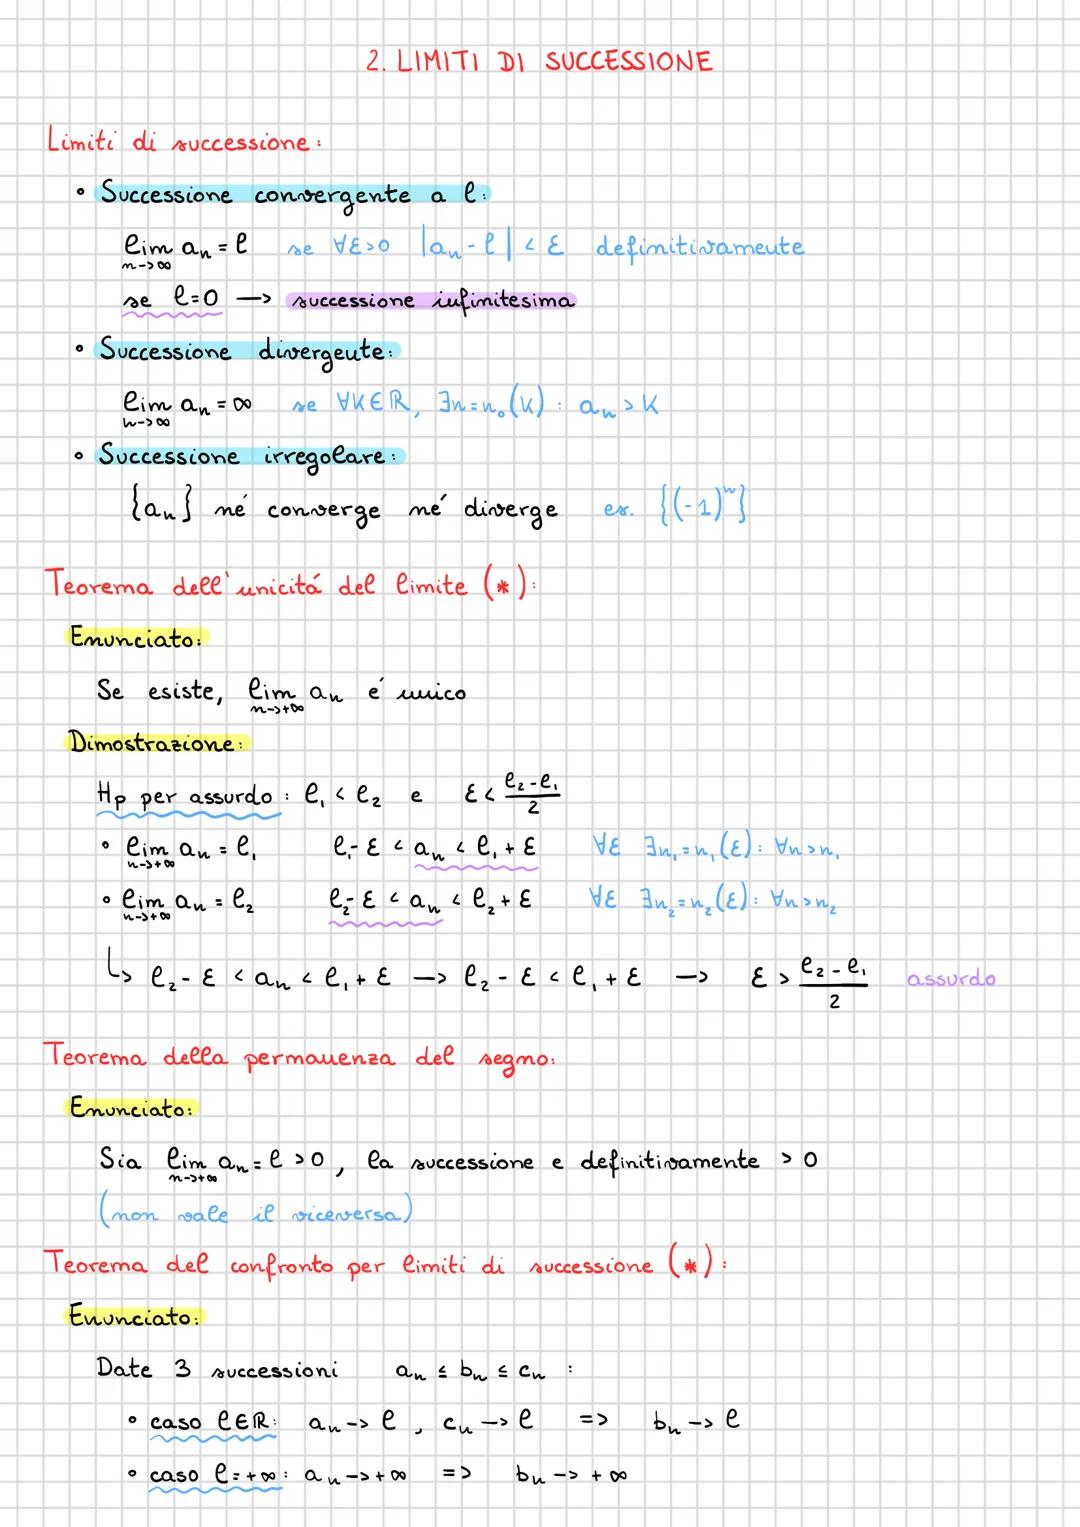 2. LIMITI DI SUCCESSIONE
Limiti di successione:
• Successione convergente a l:
lim aₙ = l se ∀ε>0 |aₙ - l| < ε definitivamente
n->∞
se l=0 —> successione infinitesima
• Successione divergente:
lim aₙ = ∞ se ∀K∈ℝ, ∃n=n₀(K) : aₙ > K
n->∞
• Successione irregolare:
{aₙ} né converge né diverge es. {(-1)ⁿ}
Teorema dell'unicitá del limite (*):
Enunciato:
Se esiste, lim aₙ é unico
n->+∞
Dimostrazione:
Hp per assurdo : l₁ < l₂ e ε < (l₂-l₁)/2
• lim aₙ = l₁ l₁-ε < aₙ < l₁+ε ∀ε ∃n₁=n₁(ε): ∀n>n₁
n->+∞
• lim aₙ = l₂ l₂-ε < aₙ < l₂+ε ∀ε ∃n₂=n₂(ε): ∀n>n₂
n->+∞
↳ l₂-ε < aₙ < l₁+ε —> l₂-ε < l₁+ε —> ε > (l₂-l₁)/2 assurdo
Teorema della permanenza del segno:
Enunciato:
Sia lim aₙ = l >0, la successione e definitivamente > 0
n->+∞
(non vale il viceversa)
Teorema del confronto per limiti di successione (*):
Enunciato:
Date 3 successioni aₙ ≤ bₙ ≤ cₙ :
• caso l∈ℝ: aₙ -> l , cₙ -> l => bₙ -> l
• caso l=+∞: aₙ->+∞ => bₙ -> +∞